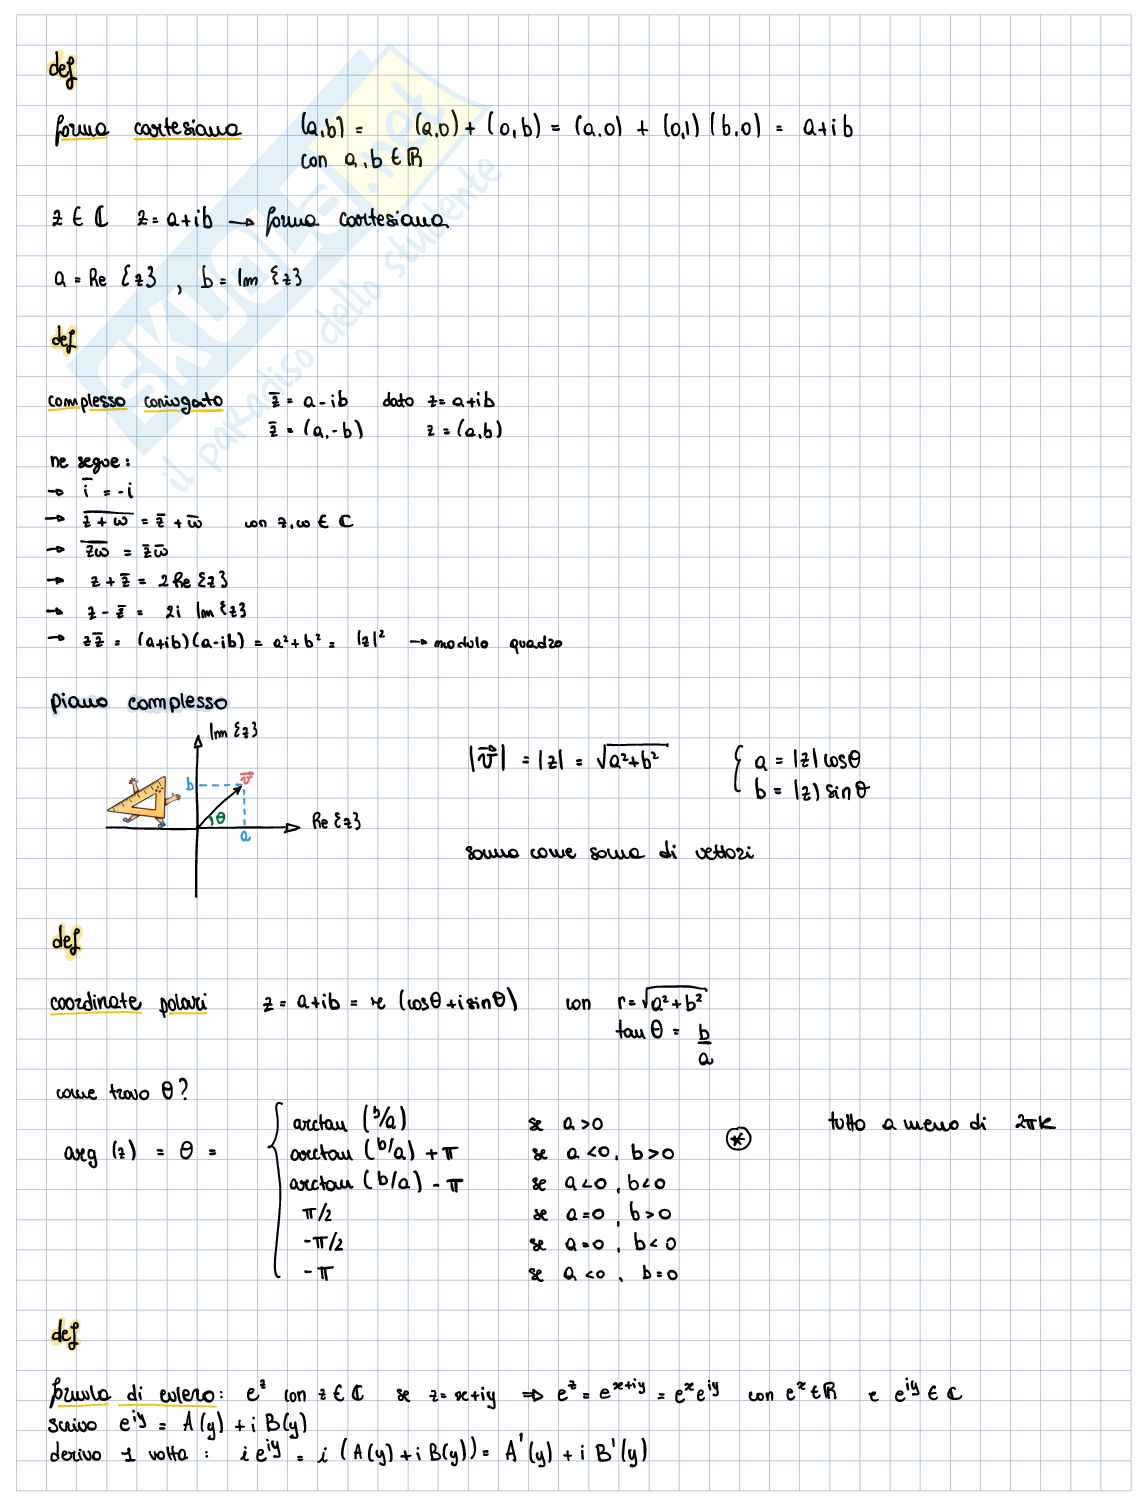 SKUOLA.net
il paradiso dello studente
def
forma cartesiana (a,b) = (a,0) + (0,b) = (a,0) + (0,1) (b,0) = a+ib
con a,b ∈ ℝ
z ∈ ℂ z = a+ib → forma cartesiana
a = Re {z} , b = Im {z}
def
complesso coniugato z̄ = a-ib dato z = a+ib
z̄ = (a,-b) z = (a,b)
ne segue:
→ ī = -i
→ \overline{z+w} = z̄ + w̄ con z,w ∈ ℂ
→ \overline{zw} = z̄w̄
→ z + z̄ = 2 Re {z}
→ z - z̄ = 2i Im {z}
→ zz̄ = (a+ib)(a-ib) = a²+b² = |z|² → modulo quadro
piano complesso
Im {z}
b v⃗
θ
a
Re {z}
|v⃗| = |z| = √(a²+b²) { a = |z| cosθ
b = |z| sinθ
somma come somma di vettori
def
coordinate polari z = a+ib = r (cosθ+i sinθ) con r = √(a²+b²)
tan θ = b/a
come trovo θ?
arg (z) = θ = { arctan (b/a) se a>0 ⊛ tutto a meno di 2πk
arctan (b/a) + π se a<0, b>0
arctan (b/a) - π se a<0, b<0
π/2 se a=0, b>0
-π/2 se a=0, b<0
-π se a<0, b=0
def
formula di eulero: e^z con z ∈ ℂ se z = x+iy ⇒ e^z = e^{x+iy} = e^x e^{iy} con e^x ∈ ℝ e e^{iy} ∈ ℂ
scrivo e^{iy} = A(y) + i B(y)
derivo 1 volta : i e^{iy} = i (A(y) + i B(y)) = A'(y) + i B'(y)